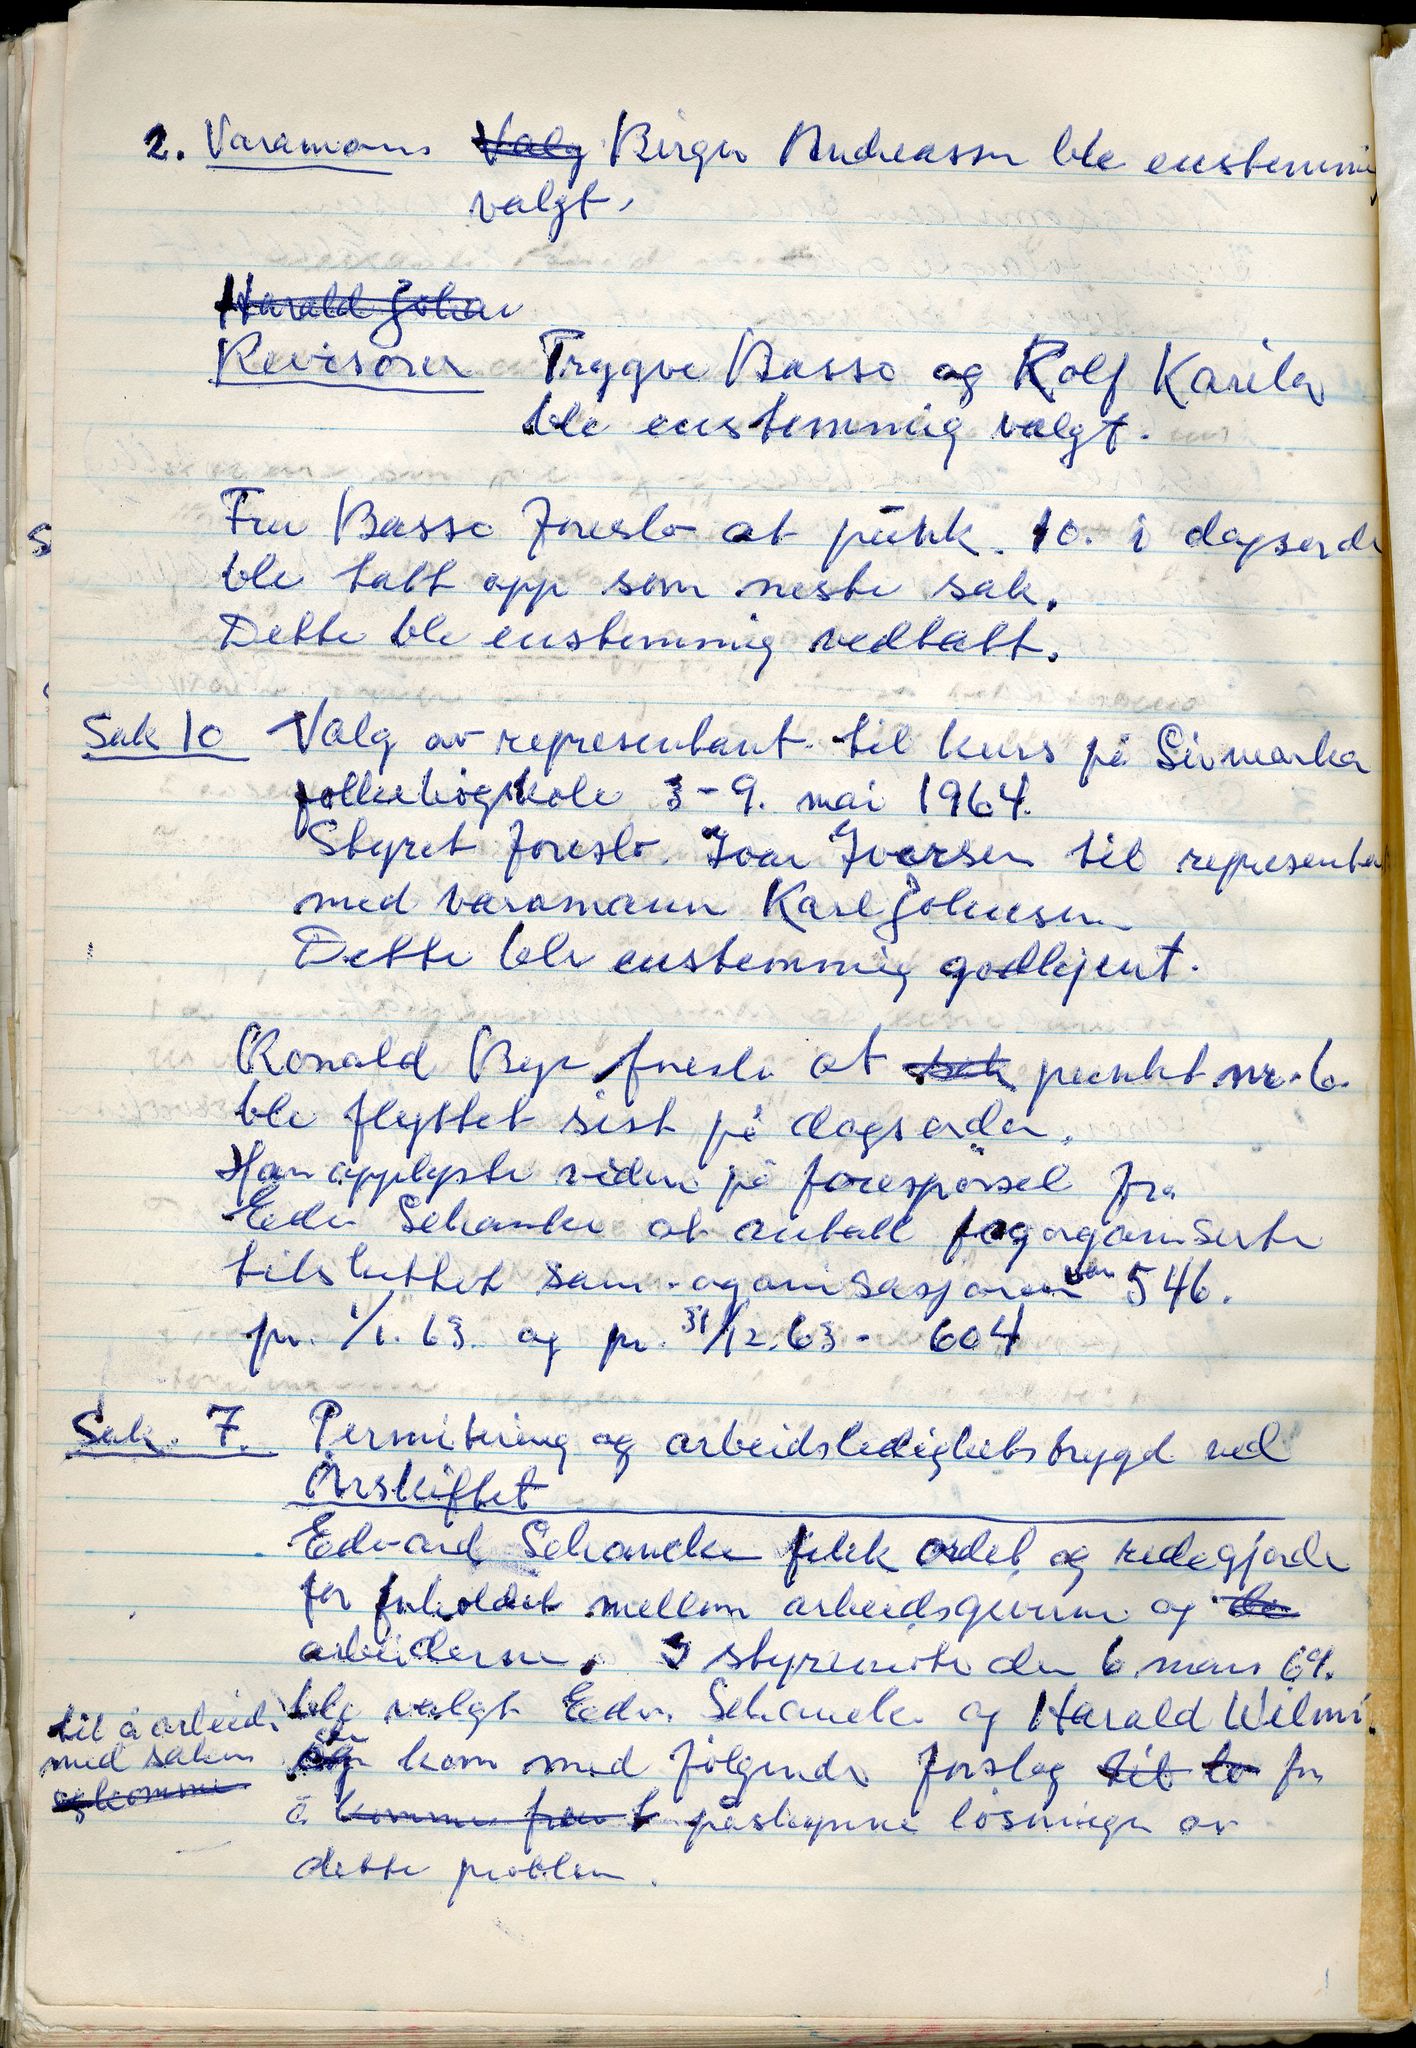 2. Varamann Valg Birger Andreassen ble enstemmi
valgt.
Harald Johan
Revisorer Trygve Basso og Rolf Karila
ble enstemmig valgt.
Fru Basso foreslo at punkt. 10. i dagsord
ble tatt opp som neste sak.
Dette ble enstemmig vedtatt.
Sak 10 Valg av representant til kurs på Sivmarka
folkehøgskole 3-9. mai 1964.
Styret foreslo. Ivar Iversen til representa
med varamann Karl Johnsen
Dette ble enstemmig godkjent.
Ronald Bye foreslo at sak punkt nr. 6.
ble flyttet sist på dagsorden.
Han opplyste viden på forespørsel fra
Edv. Schancke at antall fagorganiserte
tilsluttet sam.organisasjonen var 546.
pr. 1/1.63. og pr. 31/12.63 - 604
Sak. 7. Permitering og arbeidsledighetstrygd ved
Årskiftet
Edvard Schancke fikk ordet og redegjorde
for forholdet mellom arbeidsgiverne og de
arbeiderne. I styremöte den 6. mars 64.
ble valgt Edv. Schancke og Harald Wilmi.
til å arbeide
med saken
og komme
og de kom med fölgende forslag til to for
å komme fram t påskynne lösninger av
dette problem.